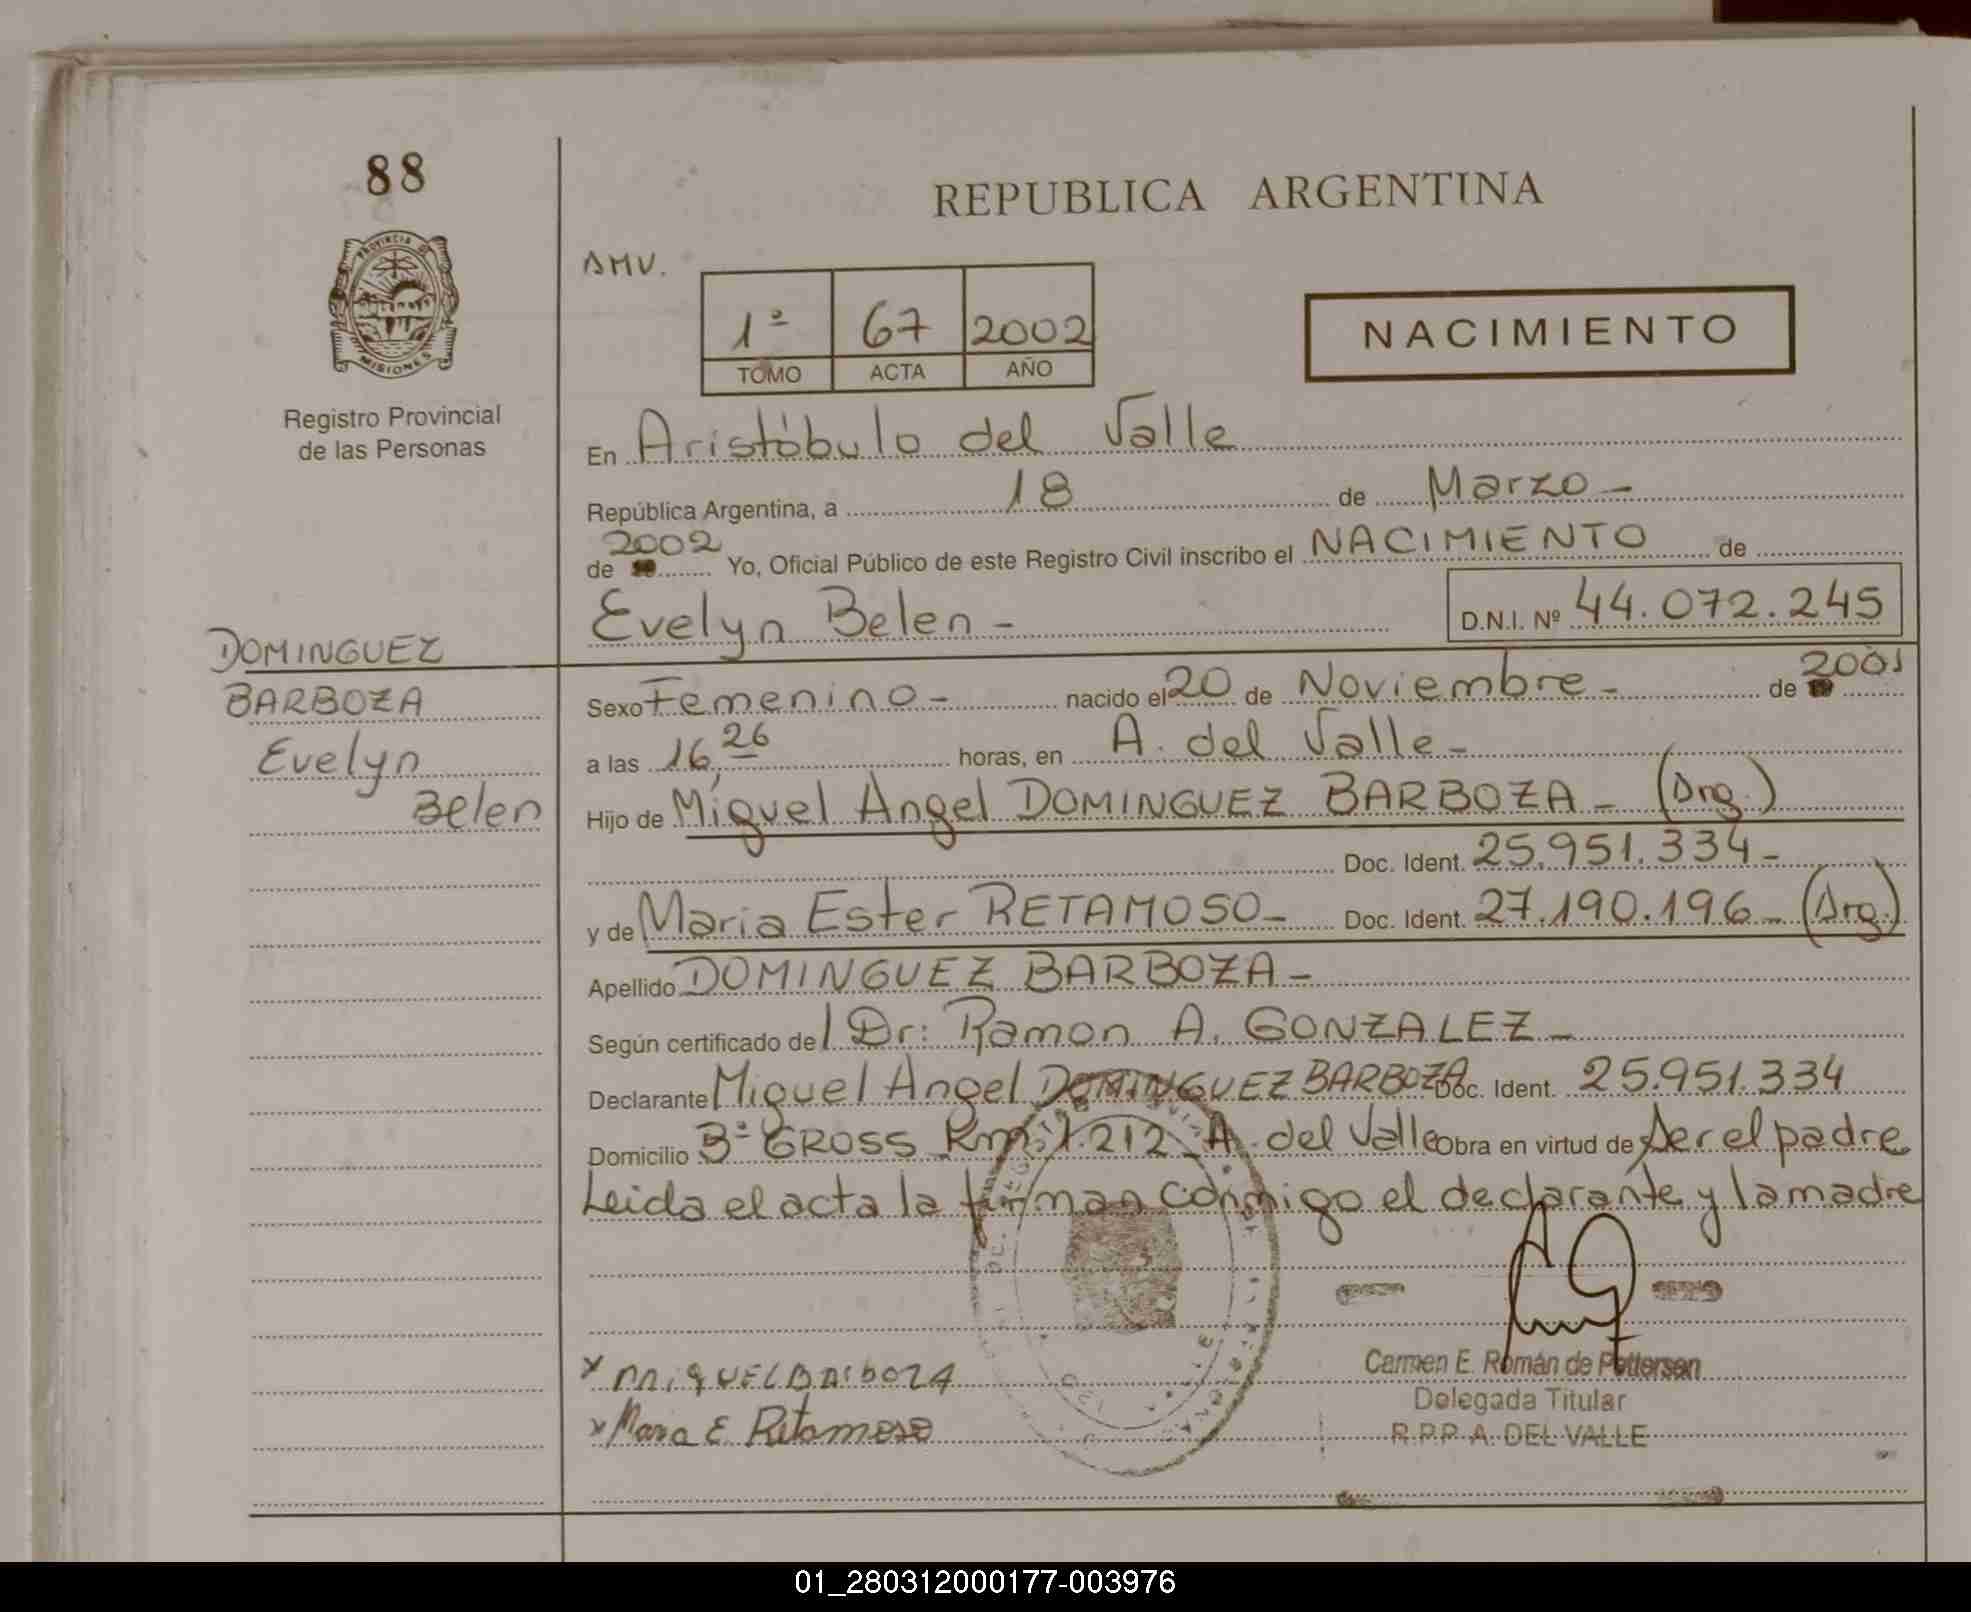 88
REPUBLICA ARGENTINA
PROVINCIA DE
MISIONES
Registro Provincial
de las Personas
AMV.
1º 67 2002
TOMO ACTA AÑO
NACIMIENTO
En Aristóbulo del Valle
República Argentina, a 18 de Marzo -
de 2002 Yo, Oficial Público de este Registro Civil inscribo el NACIMIENTO de
Evelyn Belen - D.N.I. Nº 44.072.245
DOMINGUEZ
BARBOZA
Evelyn
Belen
Sexo Femenino - nacido el 20 de Noviembre - de 2001
a las 16,26 horas, en A. del Valle -
Hijo de Miguel Angel DOMINGUEZ BARBOZA - (Arg.)
Doc. Ident. 25.951.334 -
y de Maria Ester RETAMOSO - Doc. Ident. 27.190.196 - (Arg.)
Apellido DOMINGUEZ BARBOZA -
Según certificado del Dr: Ramon A. GONZALEZ -
Declarante Miguel Angel DOMINGUEZ BARBOZA Doc. Ident. 25.951.334
Domicilio Bº GROSS Km 1.212 A. del Valle Obra en virtud de ser el padre
Leida el acta la firman conmigo el declarante y la madre
x MIGUEL BARBOZA
x Maria E Retamoso
Carmen E. Román de Pettersen
Delegada Titular
R.P.P. A. DEL VALLE
01_280312000177-003976